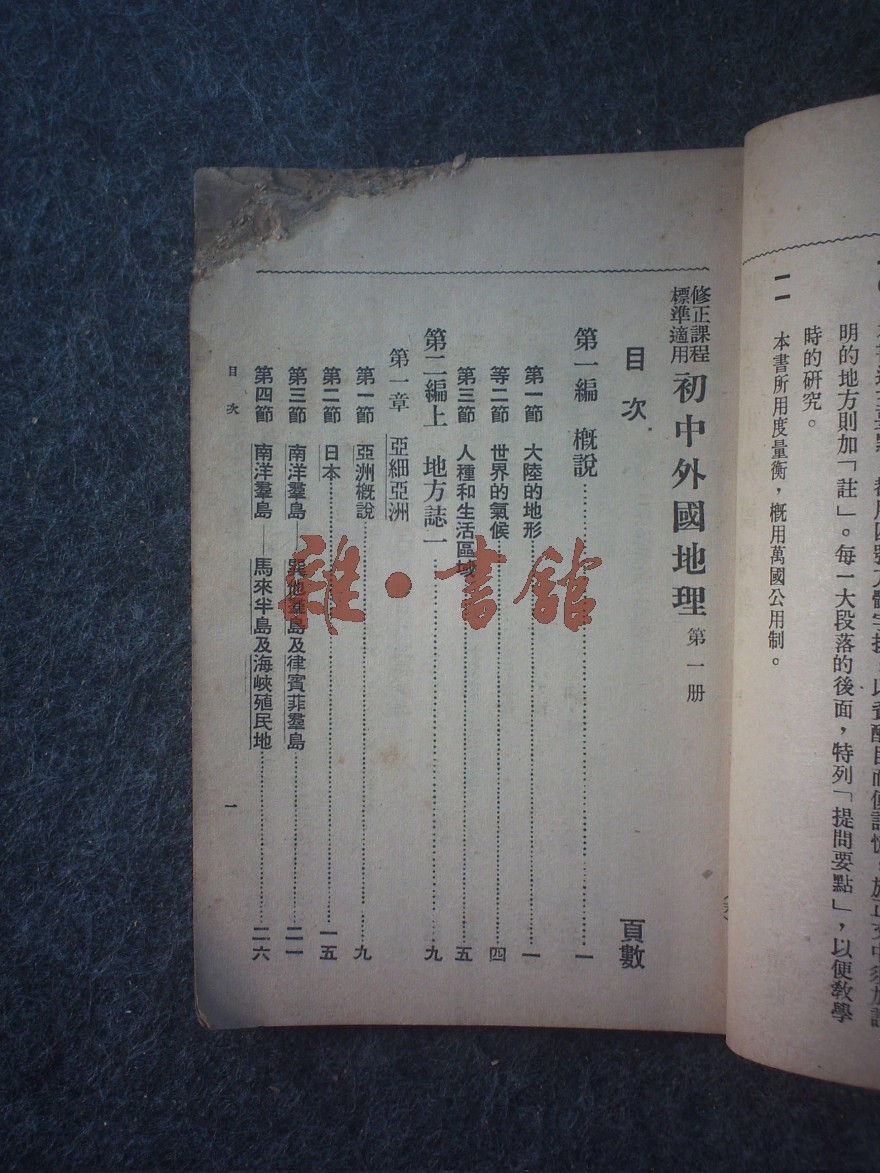 明的地方則加「註」。每一大段落的後面，特列「提問要點」，以便敎學
時的研究。
一一　本書所用度量衡，槪用萬國公用制。
修正課程標準適用 初中外國地理 第一册
目次 頁數
第一編 槪說……一
第一節 大陸的地形……一
等二節 世界的氣候……四
第三節 人種和生活區域……五
第二編上 地方誌一……九
第一章 亞細亞洲
第一節 亞洲概說……九
第二節 日本……一五
第三節 南洋羣島——巽他羣島及律賓菲羣島……二一
第四節 南洋羣島——馬來半島及海峽殖民地……二六
目次 一
雜·書舘